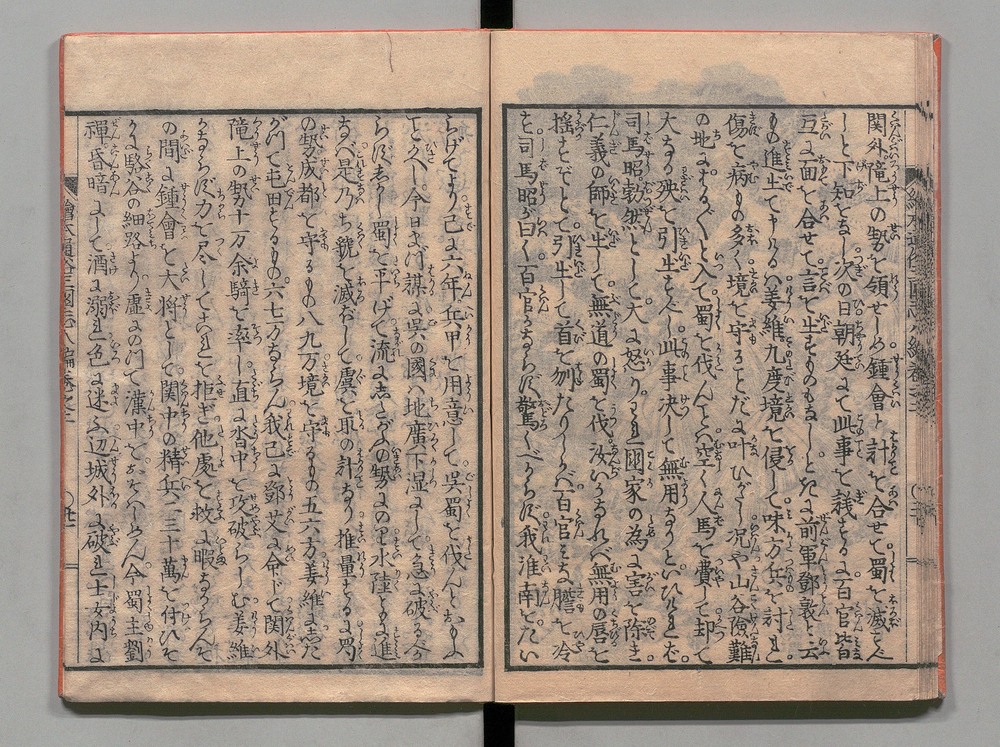 関外隴上の勢を領せしめ鍾會と計を合せて蜀を滅すべ
しと下知をなし次の日朝廷にて此事を議するに百官皆
互に面を合せて言を出すものもなしときに前軍鄧敦と云
もの進出て申けるハ姜維九度境を侵して味方兵を討れ
傷を病もの多く境を守ることだに叶ひがたし況や山谷險難
の地にふかく入て蜀を伐んとハ空く人馬を費して却て
大なる殃を引出すべし此事决して無用なりといひけれバ
司馬昭勃然として大に怒りわれ國家の為に害を除き
仁義の師を出して無道の蜀を伐汝いかなれバ無用の唇を
揺すぞとて引出して首を刎たりしかバ百官みな膽を冷
せ司馬昭が曰く百官かならず驚くべからず我淮南をたい
らげてより已に六年兵甲を用意して呉蜀を伐んとおもふ
こと久し今日よく謀に呉の國ハ地廣下湿にして急に破るゝ
らずまづ蜀を平げて流にしたがふの勢にのり水陸ともに進
なバ是乃ち虢を滅ぼして虞を取の計なり推量するに乃
の勢成都を守るもの八九万境を守るもの五六万姜維にした
がつて屯田するもの六七万ならん我已に鄧艾に命じて関外
隴上の勢十万余騎を率し直に沓中を攻破らしむ姜維
かならず力を尽してこれを拒ぎ他處を救ふ暇なからんそ
の間に鍾會を大将として関中の精兵二三十萬を付ひそ
かに駱谷の細路より虚にのつて漢中をおそハしめん今蜀主劉
禅昏暗にして酒に溺れ色に迷ふ辺城外に破れ士女内に